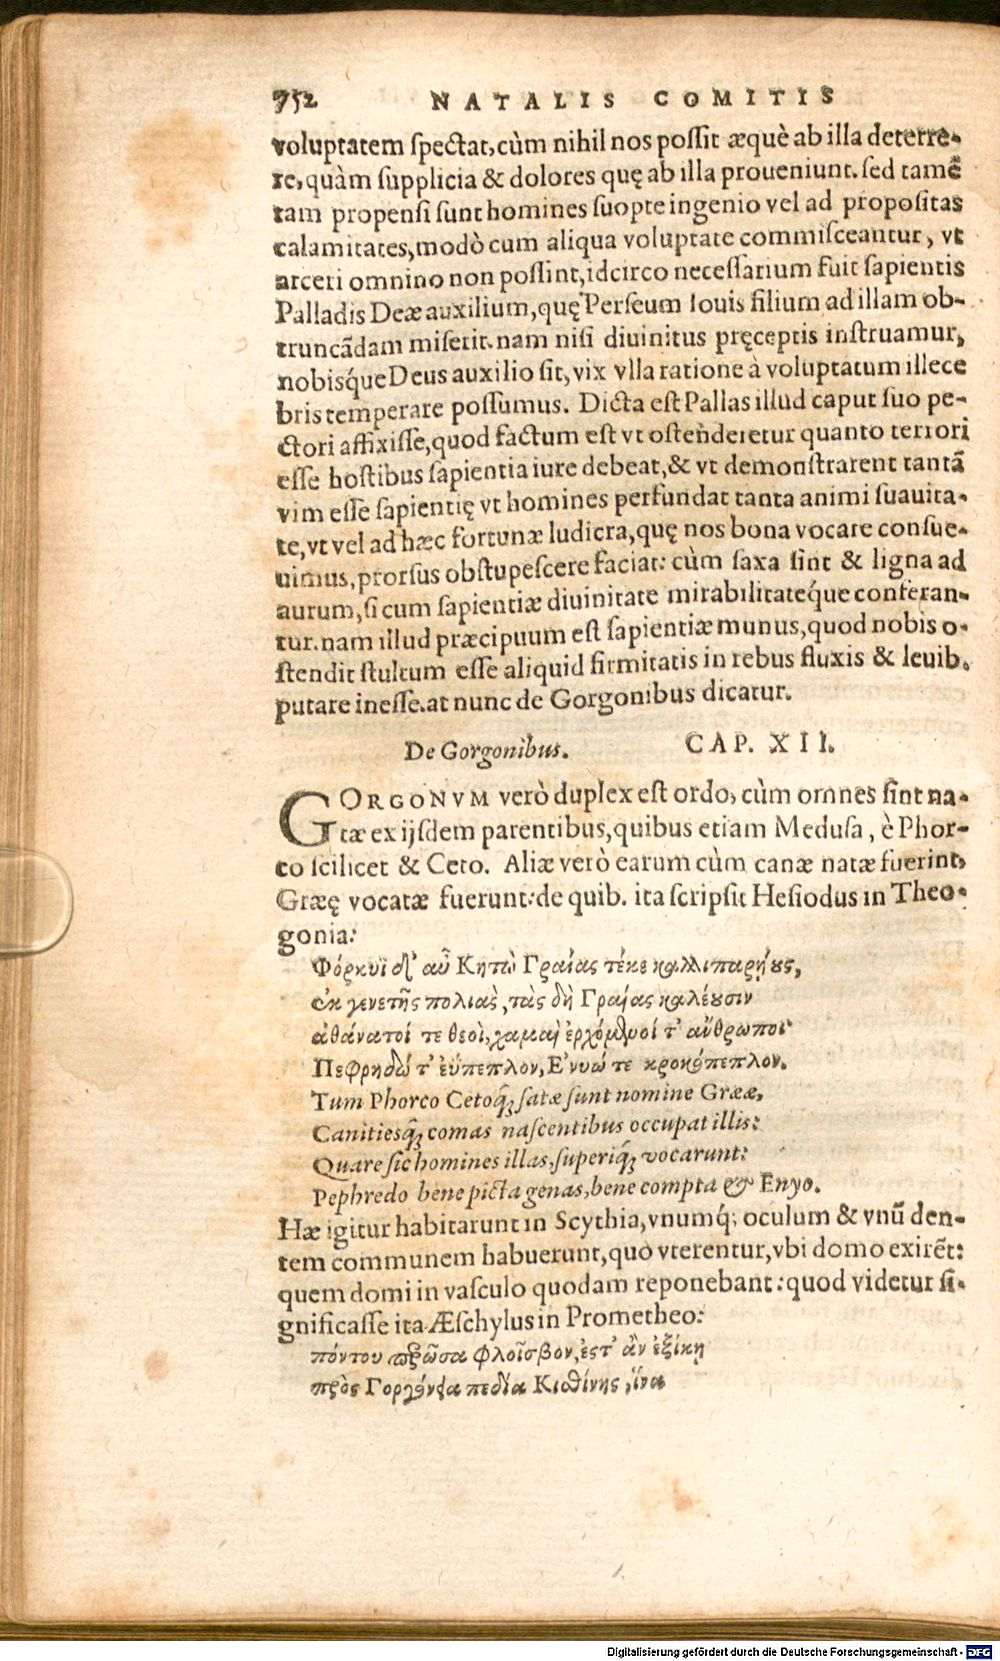 752 NATALIS COMITIS
voluptatem spectat, cùm nihil nos possit æquè ab illa deterre-
re, quàm supplicia & dolores quę ab illa proueniunt. sed tamẽ
tam propensi sunt homines suopte ingenio vel ad propositas
calamitates, modò cum aliqua voluptate commisceantur, vt
arceri omnino non possint, idcirco necessarium fuit sapientis
Palladis Deæ auxilium, quę Perseum Iouis filium ad illam ob-
truncãdam miserit. nam nisi diuinitus pręceptis instruamur,
nobisq́ue Deus auxilio sit, vix vlla ratione à voluptatum illece
bris temperare possumus. Dicta est Pallas illud caput suo pe-
ctori affixisse, quod factum est vt ostenderetur quanto terrori
esse hostibus sapientia iure debeat, & vt demonstrarent tantã
vim esse sapientię vt homines perfundat tanta animi suauita-
te, vt vel ad hæc fortunæ ludicra, quę nos bona vocare consue-
uimus, prorsus obstupescere faciat: cùm saxa sint & ligna ad
aurum, si cum sapientiæ diuinitate mirabilitateq́ue conferan-
tur. nam illud præcipuum est sapientiæ munus, quod nobis o-
stendit stultum esse aliquid firmitatis in rebus fluxis & leuib.
putare inesse. at nunc de Gorgonibus dicatur.
De Gorgonibus. CAP. XII.
GORGONVM verò duplex est ordo, cùm omnes sint na-
tæ ex ijsdem parentibus, quibus etiam Medusa, è Phor-
co scilicet & Ceto. Aliæ verò earum cùm canæ natæ fuerint,
Græę vocatæ fuerunt: de quib. ita scripsit Hesiodus in Theo-
gonia:
Φόρκυϊ δ' αὖ Κητὼ Γραίας τέκε καλλιπαρῄους,
ἐκ γενετῆς πολιὰς, τὰς δὴ Γραίας καλέουσιν
ἀθάνατοί τε θεοὶ, χαμαὶ ἐρχόμενοί τ' ἄνθρωποι
Πεφρηδώ τ' ἐΰπεπλον, Ἐνυώ τε κροκόπεπλον.
Tum Phorco Cetoq́; satæ sunt nomine Grææ,
Canitiesq́; comas nascentibus occupat illis:
Quare sic homines illas, superiq́; vocarunt:
Pephredo bene picta genas, bene compta & Enyo.
Hæ igitur habitarunt in Scythia, vnumq́; oculum & vnũ den-
tem communem habuerunt, quo vterentur, vbi domo exirẽt:
quem domi in vasculo quodam reponebant: quod videtur si-
gnificasse ita Æschylus in Prometheo:
πόντου περῶσα φλοῖσβον, ἐστ' ἂν ἐξίκῃ
πρὸς Γοργόνεια πεδία Κισθίνης, ἵνα
Digitalisierung gefördert durch die Deutsche Forschungsgemeinschaft - DFG